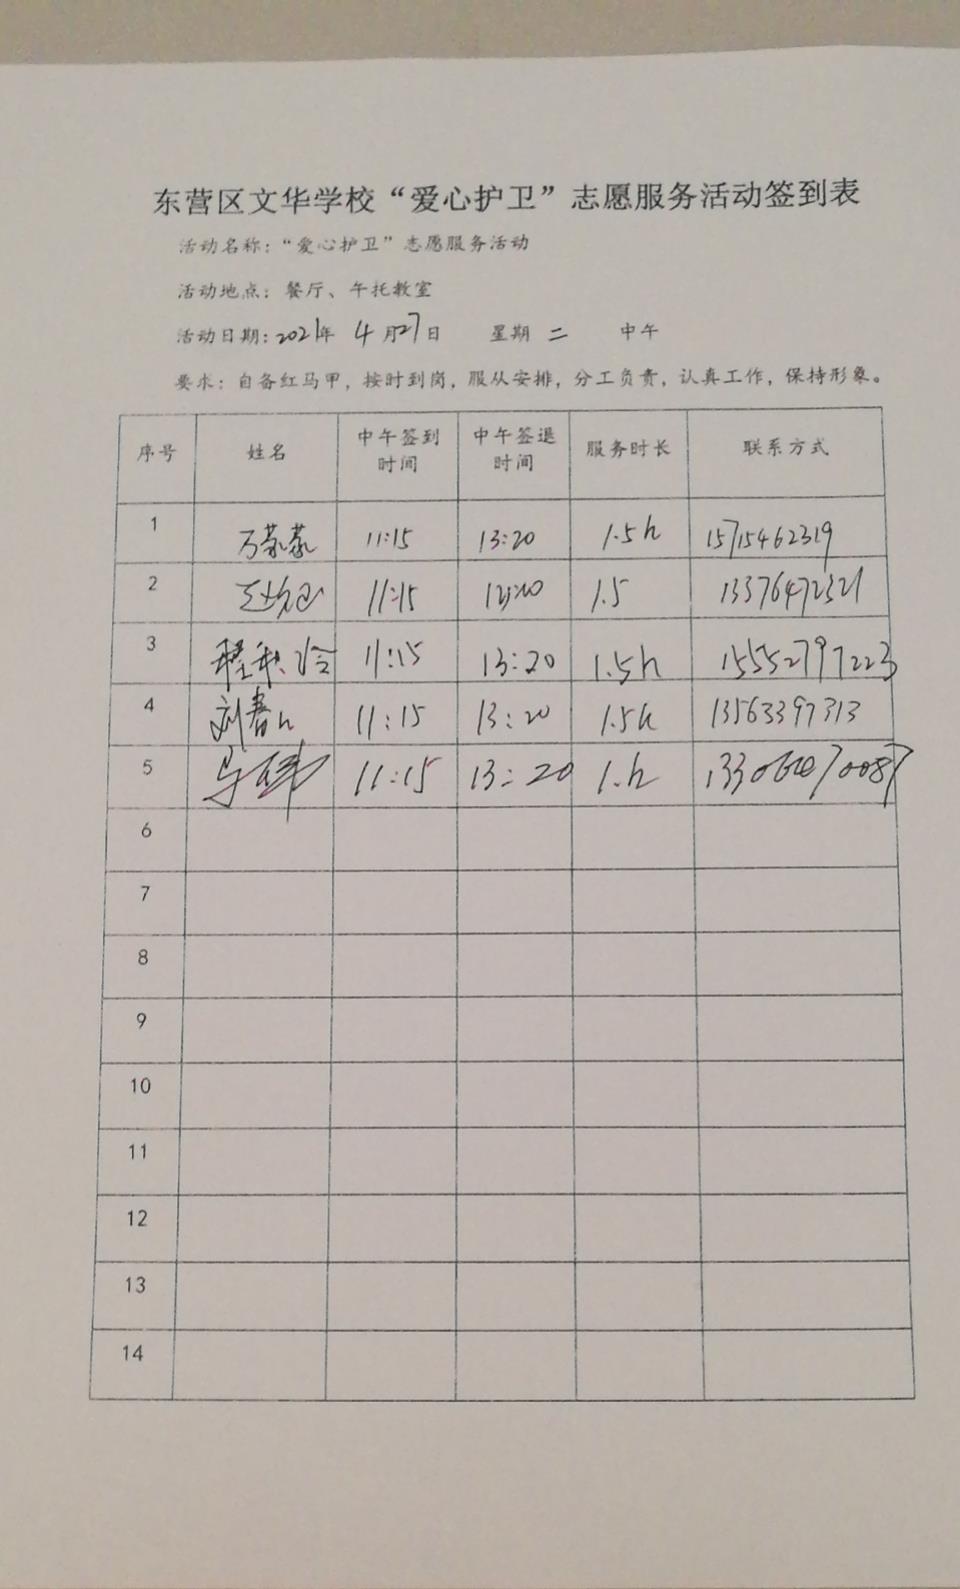 东营区文华学校“爱心护卫”志愿服务活动签到表
活动名称：“爱心护卫”志愿服务活动
活动地点：餐厅、午托教室
活动日期：2021年 4月27日 星期 二 中午
要求：自备红马甲，按时到岗，服从安排，分工负责，认真工作，保持形象。
序号 姓名 中午签到时间 中午签退时间 服务时长 联系方式
1 万蒙蒙 11:15 13:20 1.5h 15715462319
2 11:15 1.5 13376472321
3 11:15 13:20 1.5h 15552797223
4 刘春 11:15 13:20 1.5h 13563397313
5 11:15 13:20 1.h
6
7
8
9
10
11
12
13
14